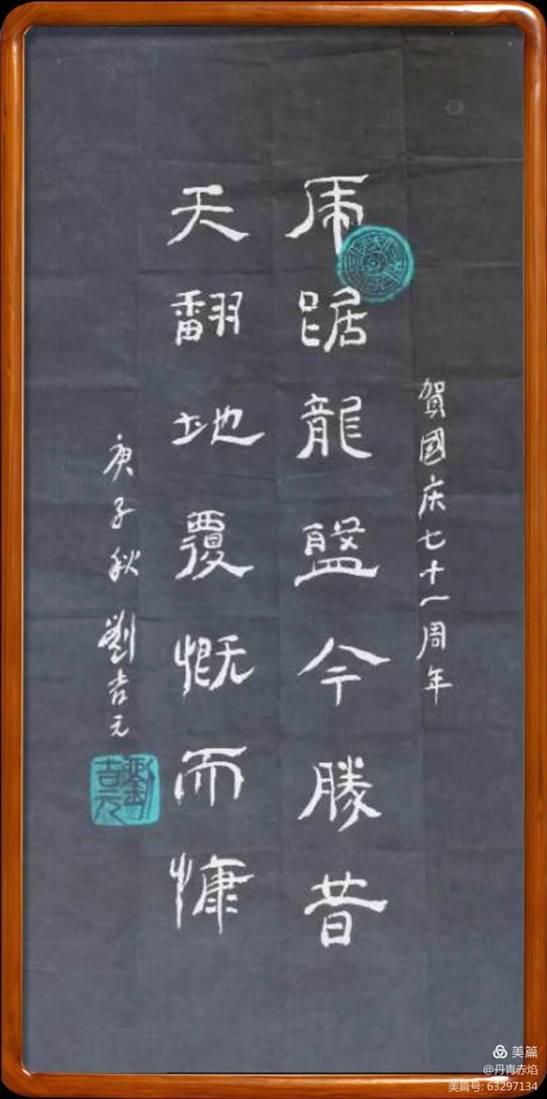 賀國庆七十一周年
虎踞龍盤今勝昔
天翻地覆慨而慷
庚子秋 劉吉元
劉吉元
美篇
@丹青赤焰
美篇号: 63297134